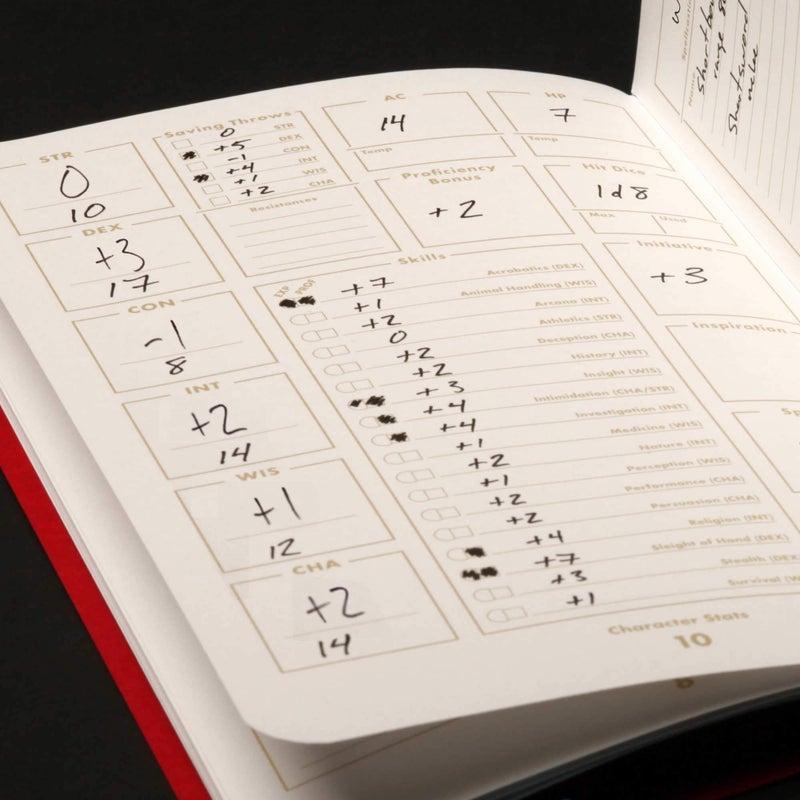 STR
0
10
DEX
+3
17
CON
-1
8
INT
+2
14
WIS
+1
12
CHA
+2
14
Saving Throws
0 STR
+5 DEX
-1 CON
+4 INT
+1 WIS
+2 CHA
Resistances
AC
14
Temp
HP
7
Temp
Proficiency
Bonus
+2
Hit Dice
1d8
Max Used
Initiative
+3
Inspiration
Skills
EXP PROF
+7 Acrobatics (DEX)
+1 Animal Handling (WIS)
+2 Arcana (INT)
0 Athletics (STR)
+2 Deception (CHA)
+2 History (INT)
+3 Insight (WIS)
+4 Intimidation (CHA/STR)
+4 Investigation (INT)
+1 Medicine (WIS)
+2 Nature (INT)
+1 Perception (WIS)
+2 Performance (CHA)
+2 Persuasion (CHA)
+4 Religion (INT)
+7 Sleight of Hand (DEX)
+3 Stealth (DEX)
+1 Survival (W
Character Stats
10
Name
Shortbow
range
Shortsword
melee